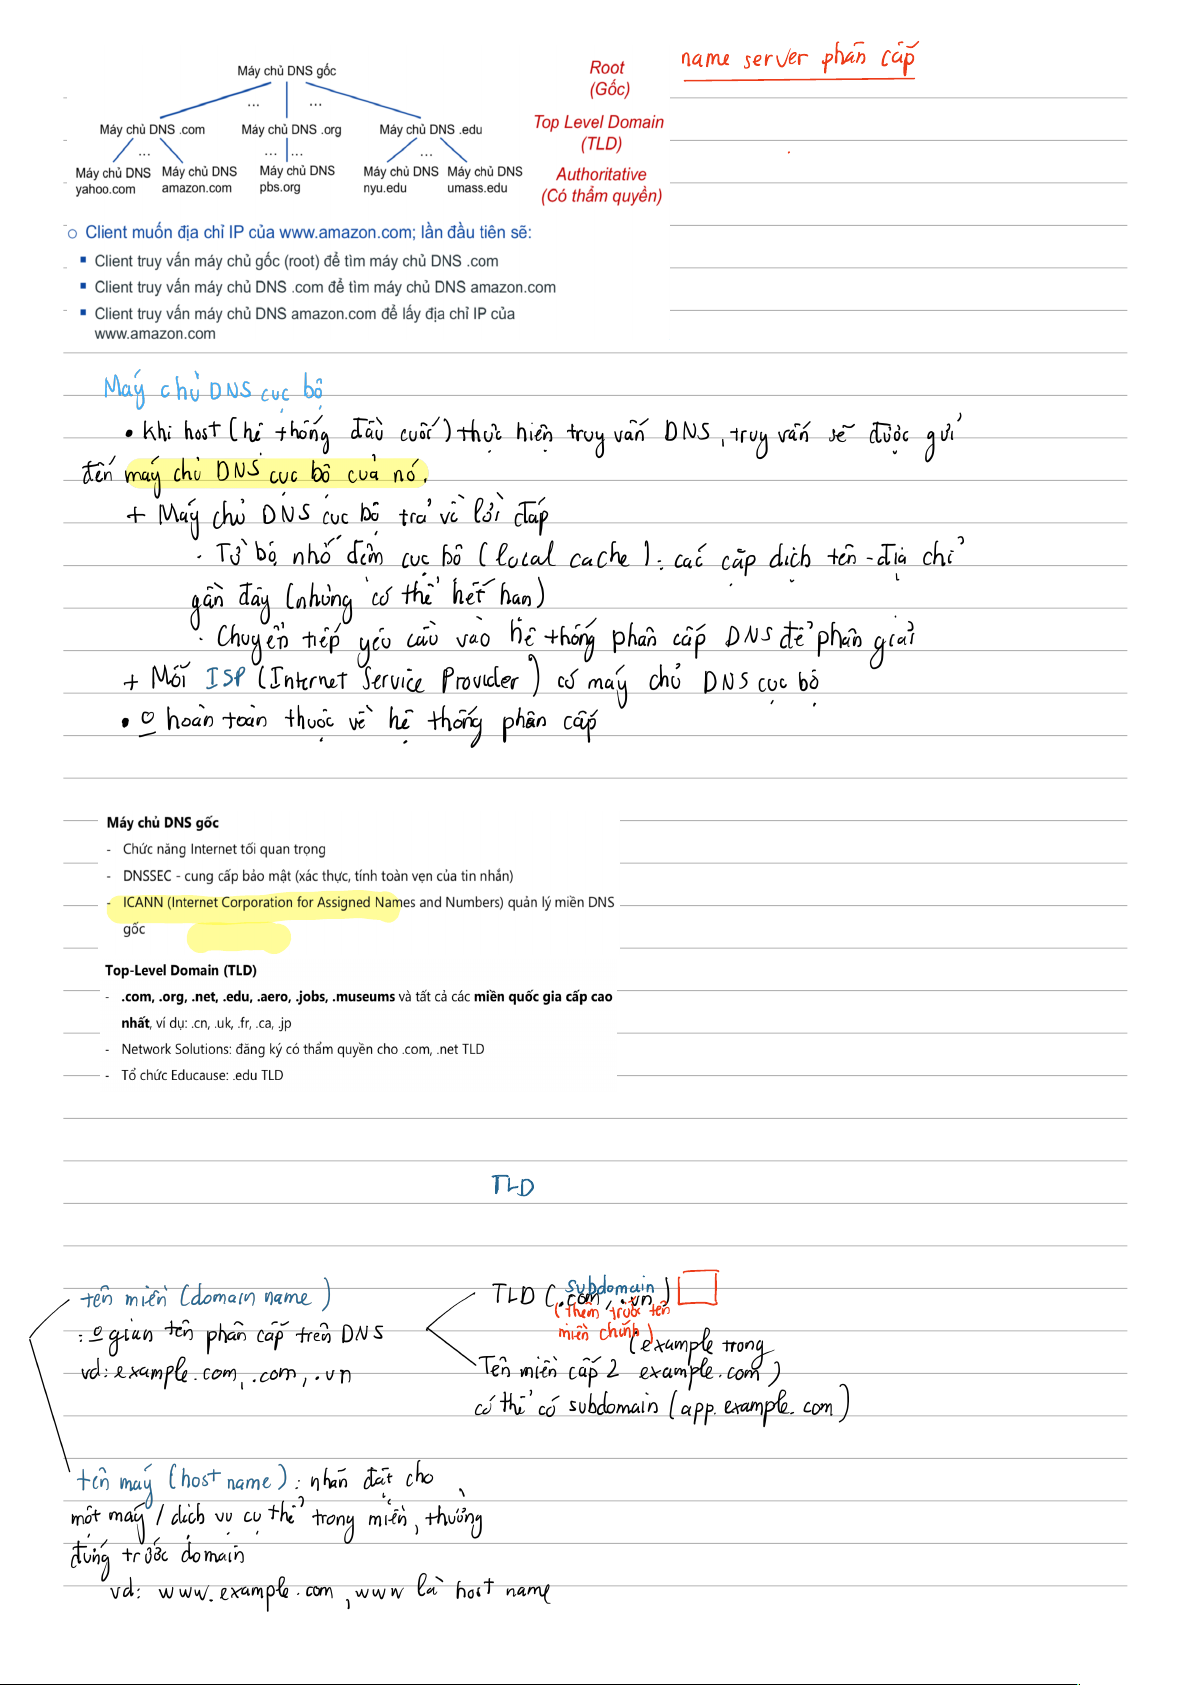 name server phân cấp
Máy chủ DNS gốc
Root
(Gốc)
... ...
Máy chủ DNS .com Máy chủ DNS .org Máy chủ DNS .edu
Top Level Domain
(TLD)
... ... ... ...
Máy chủ DNS yahoo.com
Máy chủ DNS amazon.com
Máy chủ DNS pbs.org
Máy chủ DNS nyu.edu
Máy chủ DNS umass.edu
Authoritative
(Có thẩm quyền)
Client muốn địa chỉ IP của www.amazon.com; lần đầu tiên sẽ:
Client truy vấn máy chủ gốc (root) để tìm máy chủ DNS .com
Client truy vấn máy chủ DNS .com để tìm máy chủ DNS amazon.com
Client truy vấn máy chủ DNS amazon.com để lấy địa chỉ IP của
www.amazon.com
Máy chủ DNS cục bộ
• Khi host (hệ thống đầu cuối) thực hiện truy vấn DNS, truy vấn sẽ được gửi
đến máy chủ DNS cục bộ của nó.
+ Máy chủ DNS cục bộ trả về lời đáp
· Từ bộ nhớ đệm cục bộ (local cache): các cặp dịch tên-địa chỉ
gần đây (nhưng có thể hết hạn)
· Chuyển tiếp yêu cầu vào hệ thống phân cấp DNS để phân giải
+ Mỗi ISP (Internet Service Provider) có máy chủ DNS cục bộ
• hoàn toàn thuộc về hệ thống phân cấp
Máy chủ DNS gốc
- Chức năng Internet tối quan trọng
- DNSSEC - cung cấp bảo mật (xác thực, tính toàn vẹn của tin nhắn)
- ICANN (Internet Corporation for Assigned Names and Numbers) quản lý miền DNS
gốc
Top-Level Domain (TLD)
- .com, .org, .net, .edu, .aero, .jobs, .museums và tất cả các miền quốc gia cấp cao
nhất, ví dụ: .cn, .uk, .fr, .ca, .jp
- Network Solutions: đăng ký có thẩm quyền cho .com, .net TLD
- Tổ chức Educause: .edu TLD
TLD
tên miền (domain name)
: gian tên phân cấp trên DNS
vd: example.com, .com, .vn
TLD (.com, .vn)
subdomain
(thêm trước tên
miền chính)
(example trong
Tên miền cấp 2 example.com)
có thể có subdomain (app.example.com)
tên máy (host name): nhãn đặt cho
một máy / dịch vụ cụ thể trong miền, thường
đứng trước domain
vd: www.example.com, www là host name